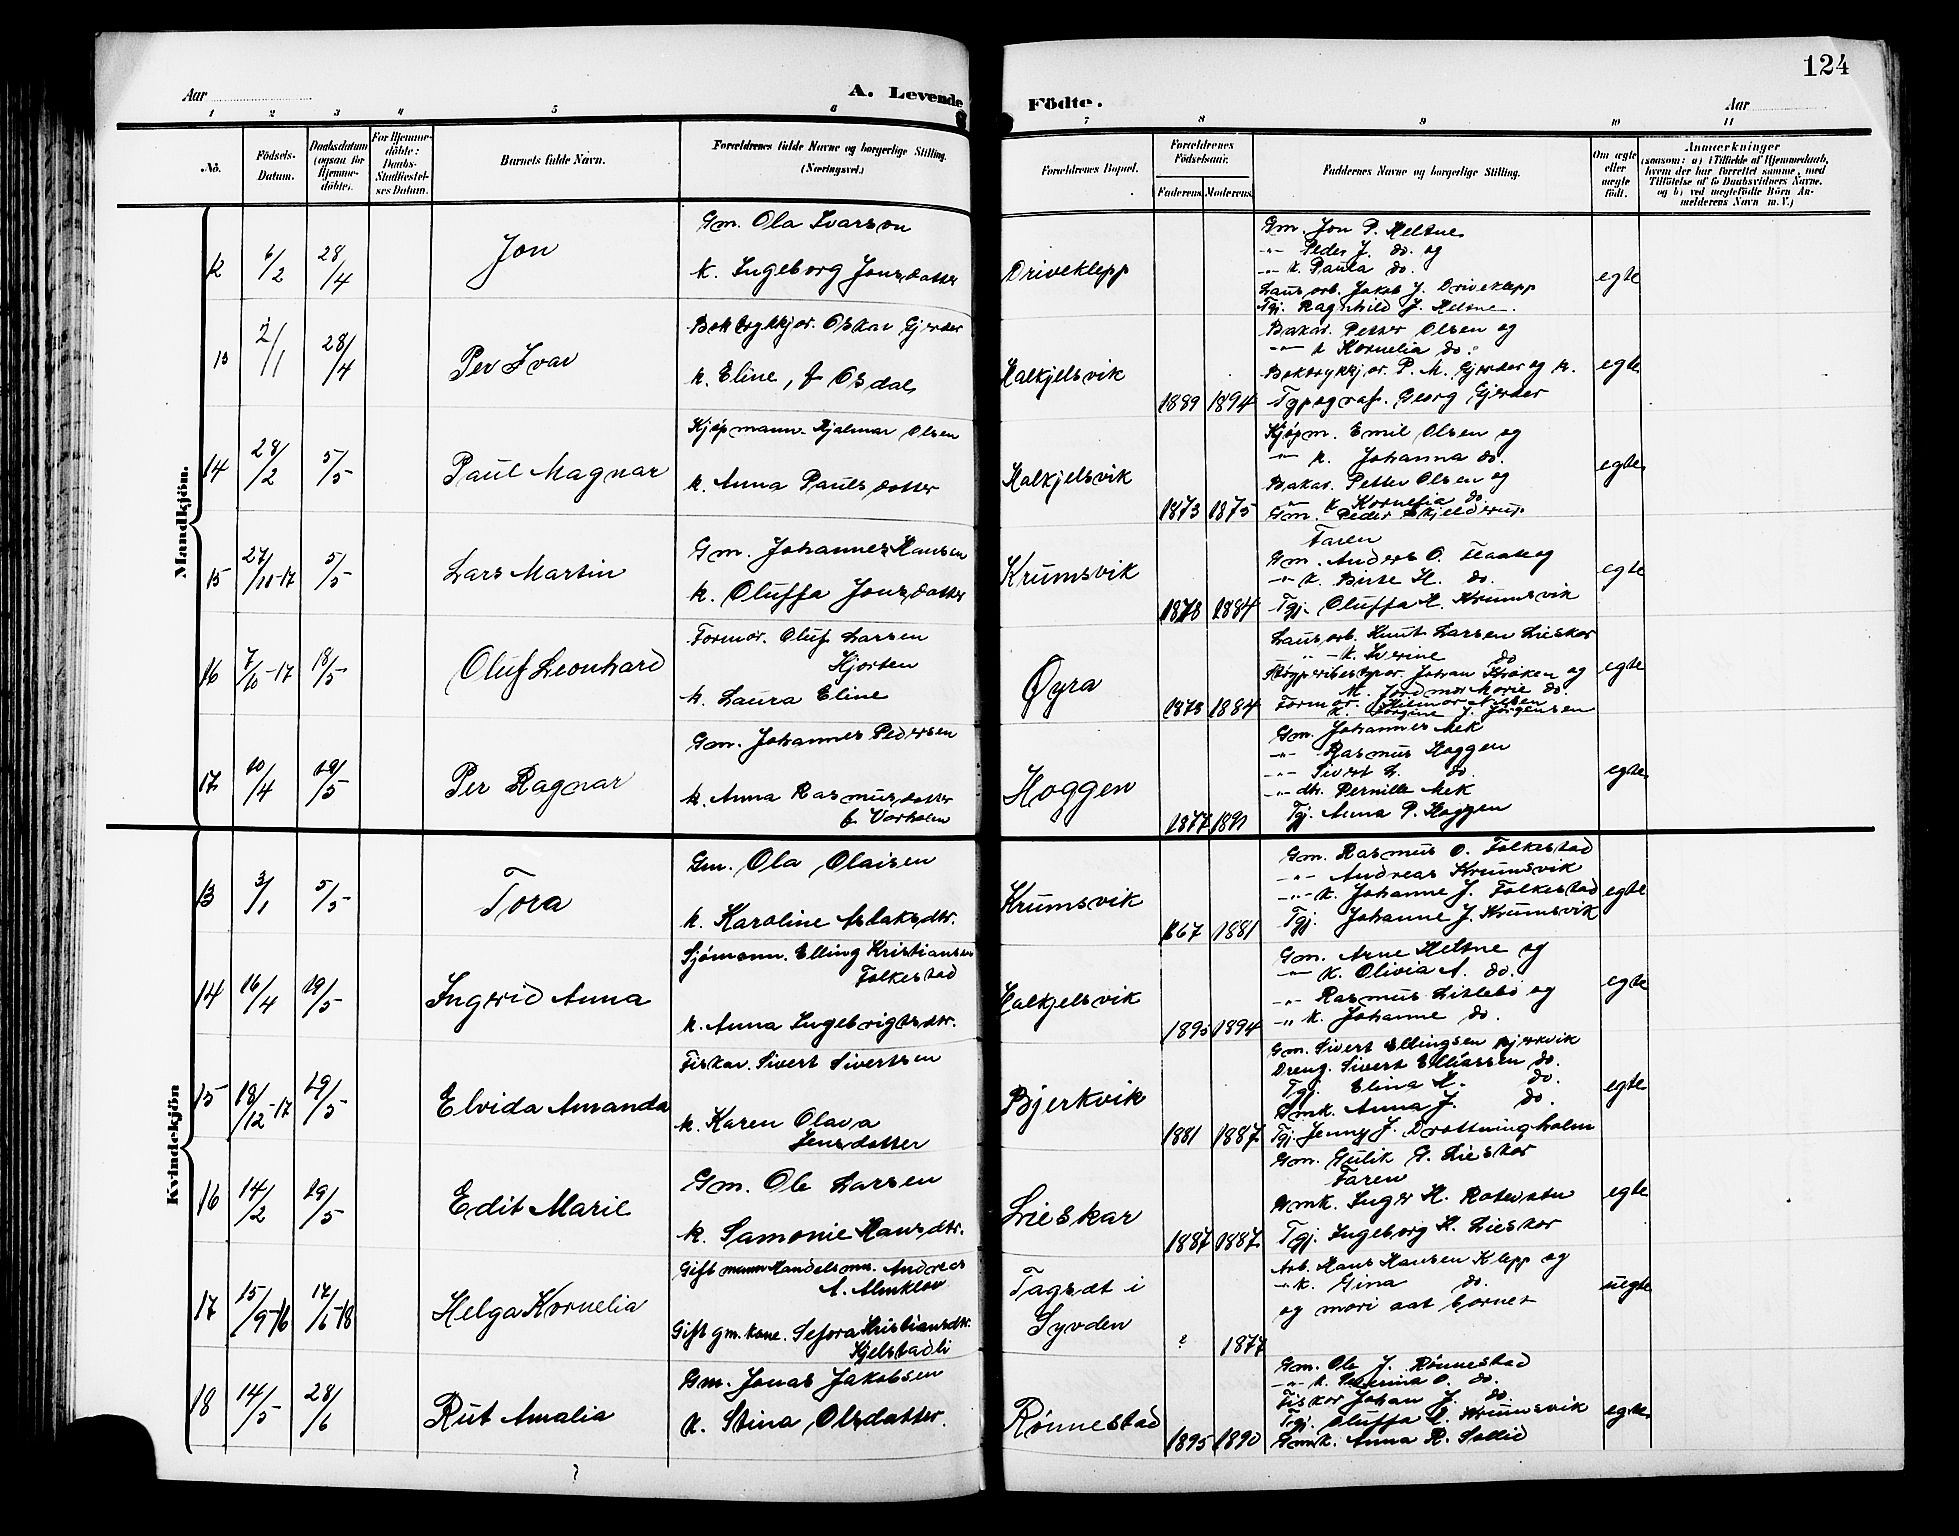 124
Aar
A. Levende Födte.
Aar
1 2 3 4 5 6 7 8 9 10 11
No.
Födsels-
Datum.
Daabsdatum
(ogsaa for
Hjemme-
döbte).
For Hjemme-
döbte:
Daabs-
Stadfæstel-
ses Datum.
Barnets fulde Navn.
Forældrenes fulde Navne og borgerlige Stilling.
(Næringsvei.)
Forældrenes Bopæl.
Forældrenes
Födselsaar.
Faderens.
Moderens.
Faddernes Navne og borgerlige Stilling.
Om ægte
eller
uægte
født.
Anmærkninger
(saasom: a) i Tilfælde af Hjemmedaab,
hvem der har forrettet samme, med
Tilföielse af to Daabsvidners Navne,
og b) ved uægtefödte Börn An-
melderens Navn m. V.)
Mandkjön.
12 6/2 28/4
Jon
Gm. Ola Ivarson
k. Ingeborg Jonsdotter
Driveklepp
Gm. Jon P. Heltne
-"- Peder J. do. og
-"- k. Paula do.
Lausarb. Jakob J. Driveklepp
Tgj. Ragnhild J. Heltne.
egte
13 2/1 28/4
Per Ivar
Boktrykkjar. Oskar Gjerder
k. Eline, f. Osdal
Halkjelsvik
1889 1894
Bakar. Petter Olsen og
-"- k Kornelia do.
Boktrykkjar. P. M. Gjerder og k.
Typograf. Georg Gjerder
egte
14 28/2 5/5
Paul Magnar
Kjøpmann. Hjalmar Olsen
k. Anna Paulsdotter
Halkjelsvik
1873 1875
Kjøpm. Emil Olsen og
-"- k. Johanna do.
Bakar. Petter Olsen og
-"- k Kornelia do
Gm. Peder Skjelderup
egte
15 27/11-17 5/5
Lars Martin
Gm. Johannes Hansen
k. Oluffa Jonsdotter
Krumsvik
1878 1884
Faren
Gm. Anders O. Flaate og
-"- k. Birte H. do.
Tgj. Oluffa H. Krumsvik
egte
16 7/10-17 18/5
Oluf Leonhard
Formor. Oluf Larsen
Hjorten
k. Laura Eline
Øyra
1878 1884
Lausarb. Knut Larsen Lieskar
-"- k. Sverine do
Johan Krøken og
Marie do.
Formor.
k. Jørgine J. Jørgensen
egte
17 10/4 19/5
Per Ragnar
Gm. Johannes Pedersen
k. Anna Rasmusdotter
f. Vorholm
Hoggen
1877 1891
Gm. Johannes Aek
-"- Rasmus Hoggen
-"- Sivert L. do.
-"- dtr. Pernille Aek
Tgj. Anna P. Hoggen
egte
Kvindekjön
13 3/1 5/5
Tora
Gm. Ola Olaisen
k. Karoline Aslaksdtr.
Krumsvik
1867 1881
Gm. Rasmus O. Folkestad
-"- Andreas Krumsvik
-"- k. Johanne J. Folkestad
Tgj. Johanne J. Krumsvik
egte
14 16/4 19/5
Ingrid Anna
Sjómann. Elling Kristiansen
Folkestad
k. Anna Ingebrigtsdtr.
Halkjelsvik
1895 1894
Gm. Arne Heltne og
-"- k. Olivia A. do.
-"- Rasmus Litlebø og
-"- k. Johanne do.
egte
15 18/12-17 19/5
Elvida Amanda
Fiskar. Sivert Sivertsen
k. Karen Olava
Jensdotter
Bjerkvik
1881 1887
Gm. Sivert Ellingsen Bjerkvik
Dreng. Sivert Elliassen do.
Tgj. Elina L. do.
Gmk. Anna J. do.
Tgj. Jenny J. Drottningholm
egte
16 14/2 19/5
Edit Marie
Gm. Ole Larsen
k. Samonie Hansdtr.
Lieskar
1887 1887
Gm. Gulik G. Lieskar
Faren
Gmk. Inger H. Rotevatn
Tgj. Ingeborg H. Lieskar
egte
17 15/9-16 17/6-18
Helga Kornelia
Gift mann Handelsmn. Andreas
A. Almklov
Gift gm. kone. Sefora Kristiansdtr.
Kjelstadli
Tagsdt i
Syvden
? 1877
Arb. Hans Hansen Klepp og
-"- k. Gina do.
og mori aat bornet
uegte
18 14/5 28/6
Rut Amalia
Gm. Jonas Jakobsen
k. Stina Olsdatter.
Rønnestad
1895 1890
Gm. Ole J. Rønnestad
-"- k. Severina O. do.
Fiskar Johan J. do.
Tgj. Oluffa H. Krumsvik
Gmk. Anna R. Sollid
egte